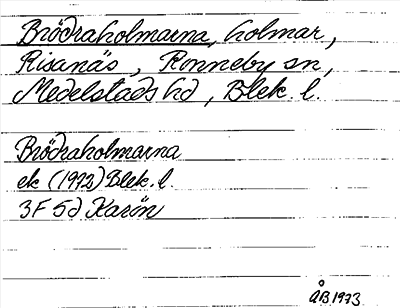 Brödraholmarna, holmar,
Risanäs, Ronneby sn,
Medelstads hd, Blek. l.
Brödraholmarna
ek (1972) Blek. l.
3F 5d Karön
ÅB 1973